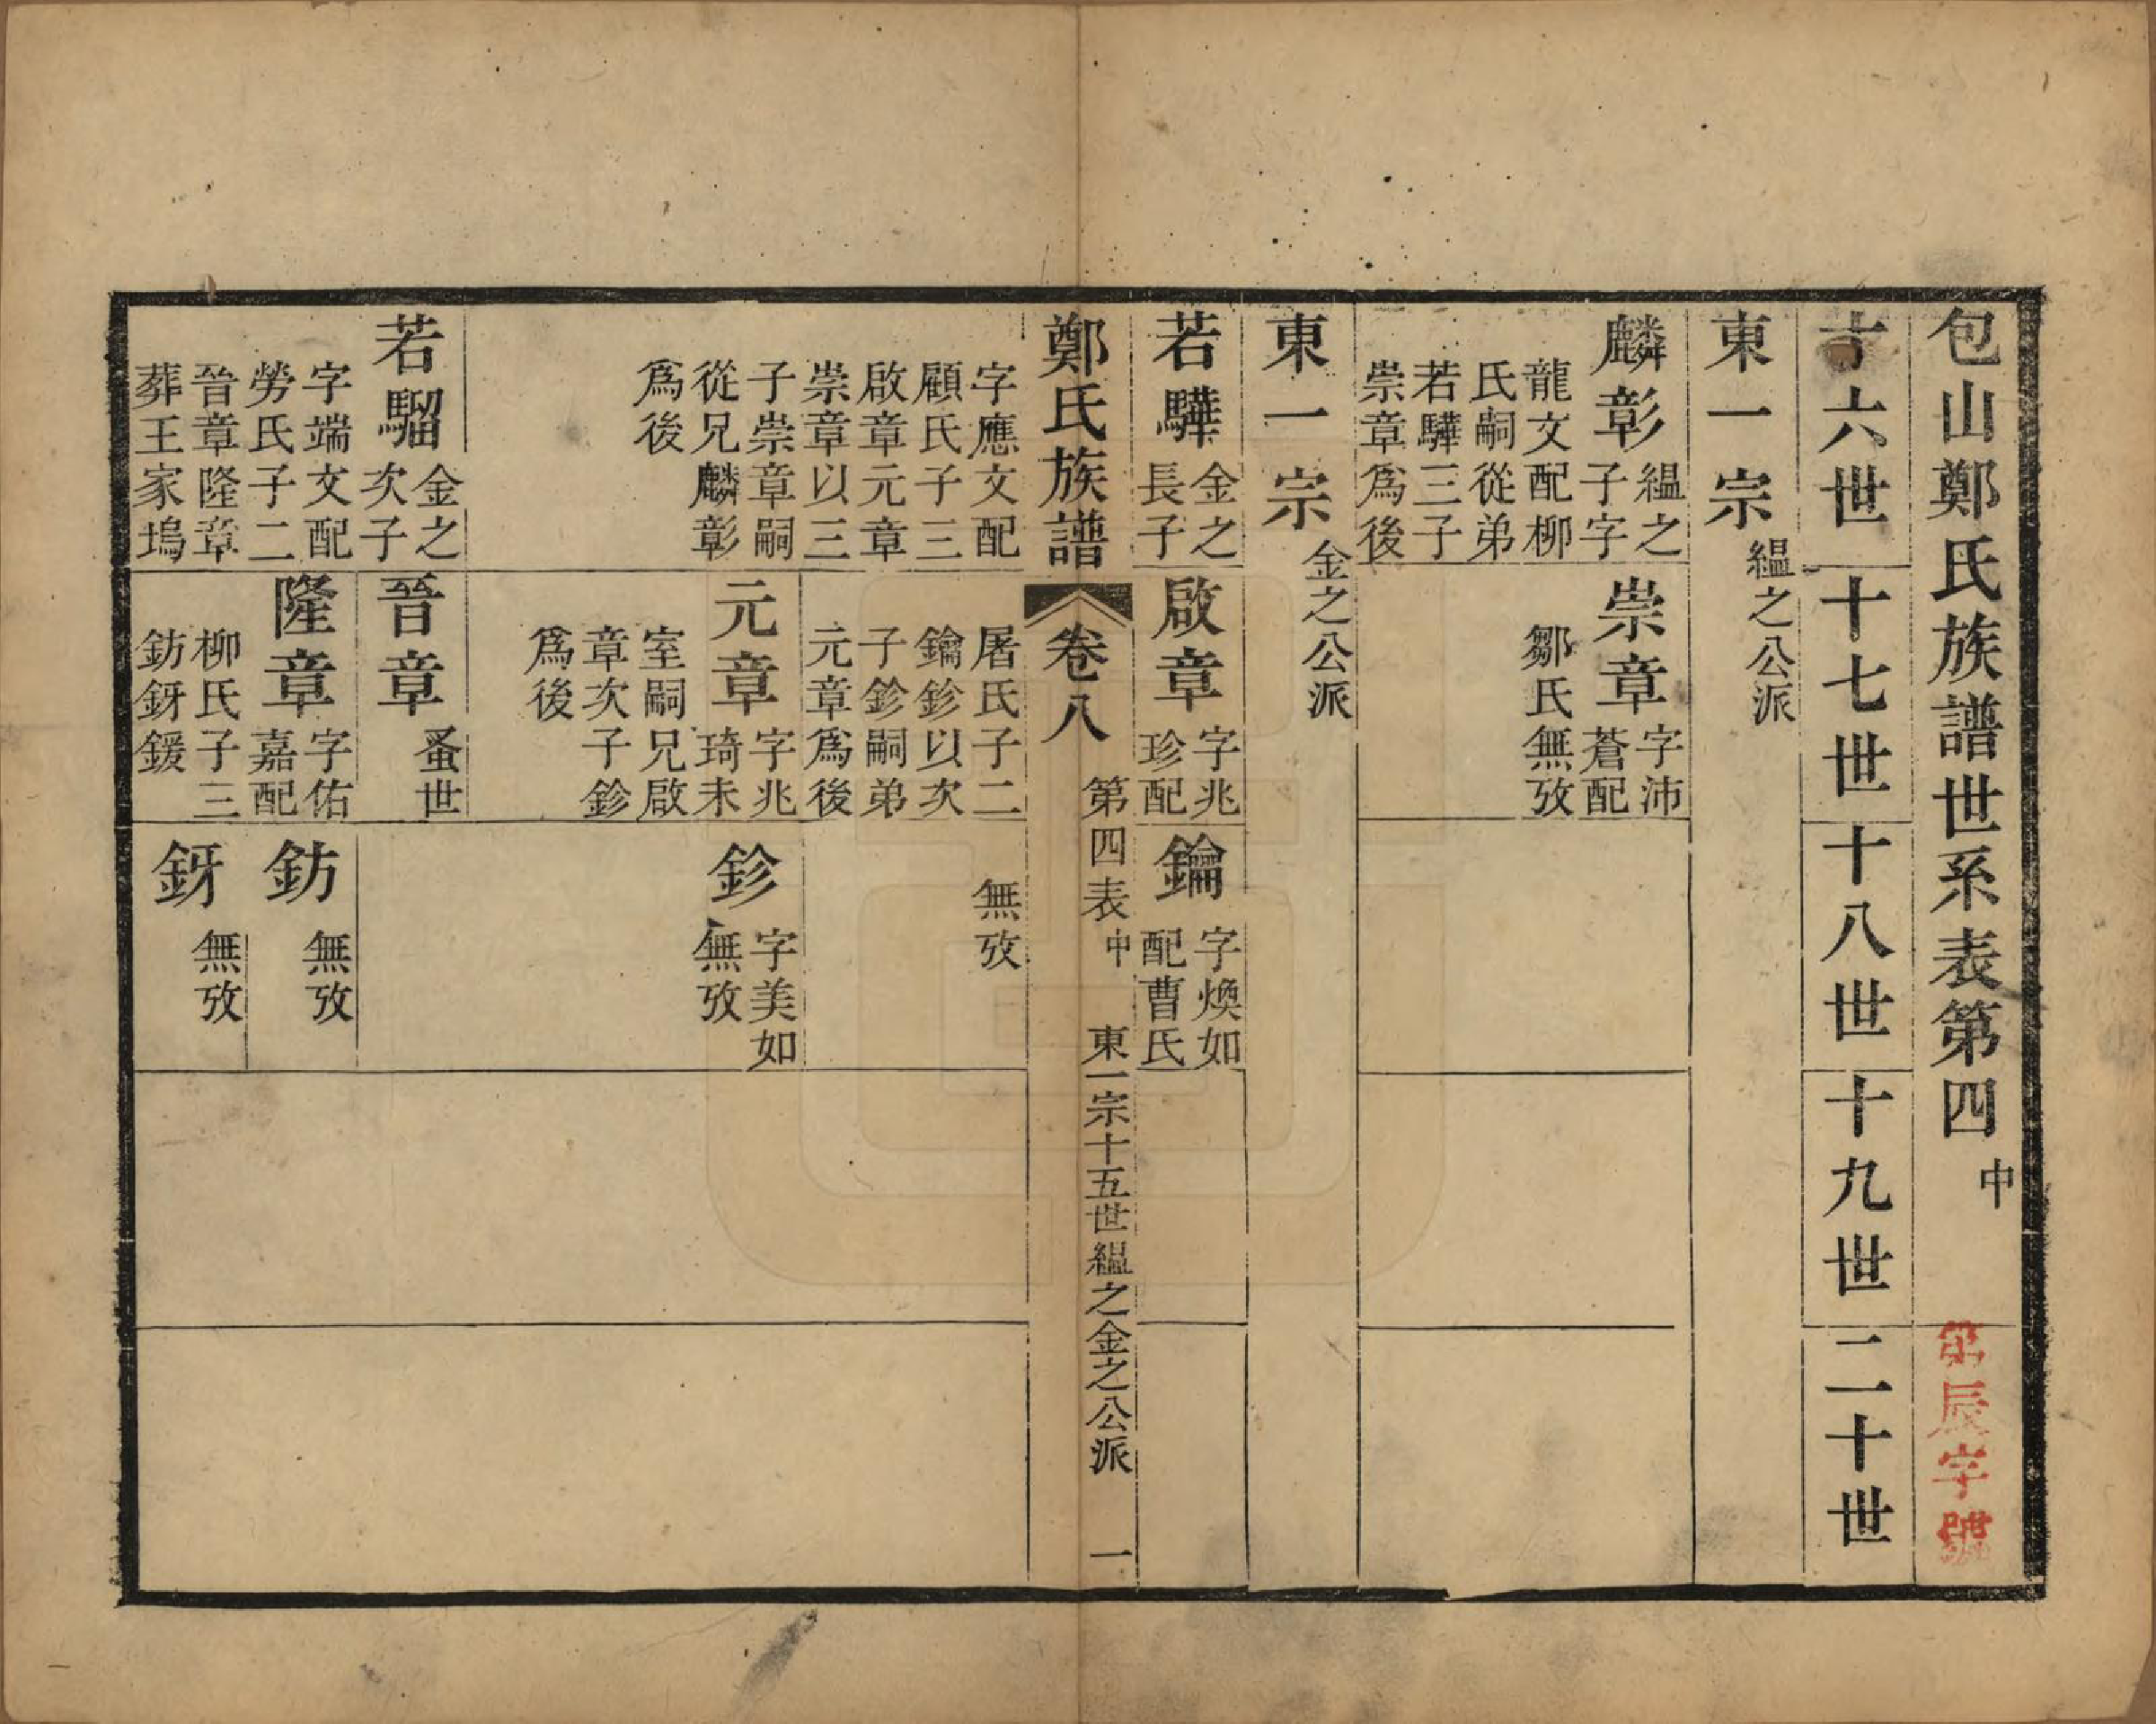 包山鄭氏族譜世系表第四中
辰字號
十六世
十七世
十八世
十九世
二十世
東一宗
緼之公派
麟彰
緼之
子字
龍文配柳
氏嗣從弟
若驊三子
崇章爲後
崇章
字沛
蒼配
鄒氏無攷
東一宗
金之公派
若驊
金之
長子
啟章
字兆
珍配
鑰
字煥如
配曹氏
鄭氏族譜
卷八
第四表中
東一宗十五世緼之金之公派
一
字應文配
顧氏子三
啟章元章
崇章以三
子崇章嗣
從兄麟彰
爲後
屠氏子二
鑰鉁以次
子鉁嗣弟
元章爲後
無攷
元章
字兆
琦未
室嗣兄啟
章次子鉁
爲後
鉁
字美如
無攷
若騮
金之
次子
字端文配
勞氏子二
晉章隆章
葬王家塢
晉章
蚤世
隆章
字佑
嘉配
柳氏子三
鈁釾鍰
鈁
無攷
釾
無攷